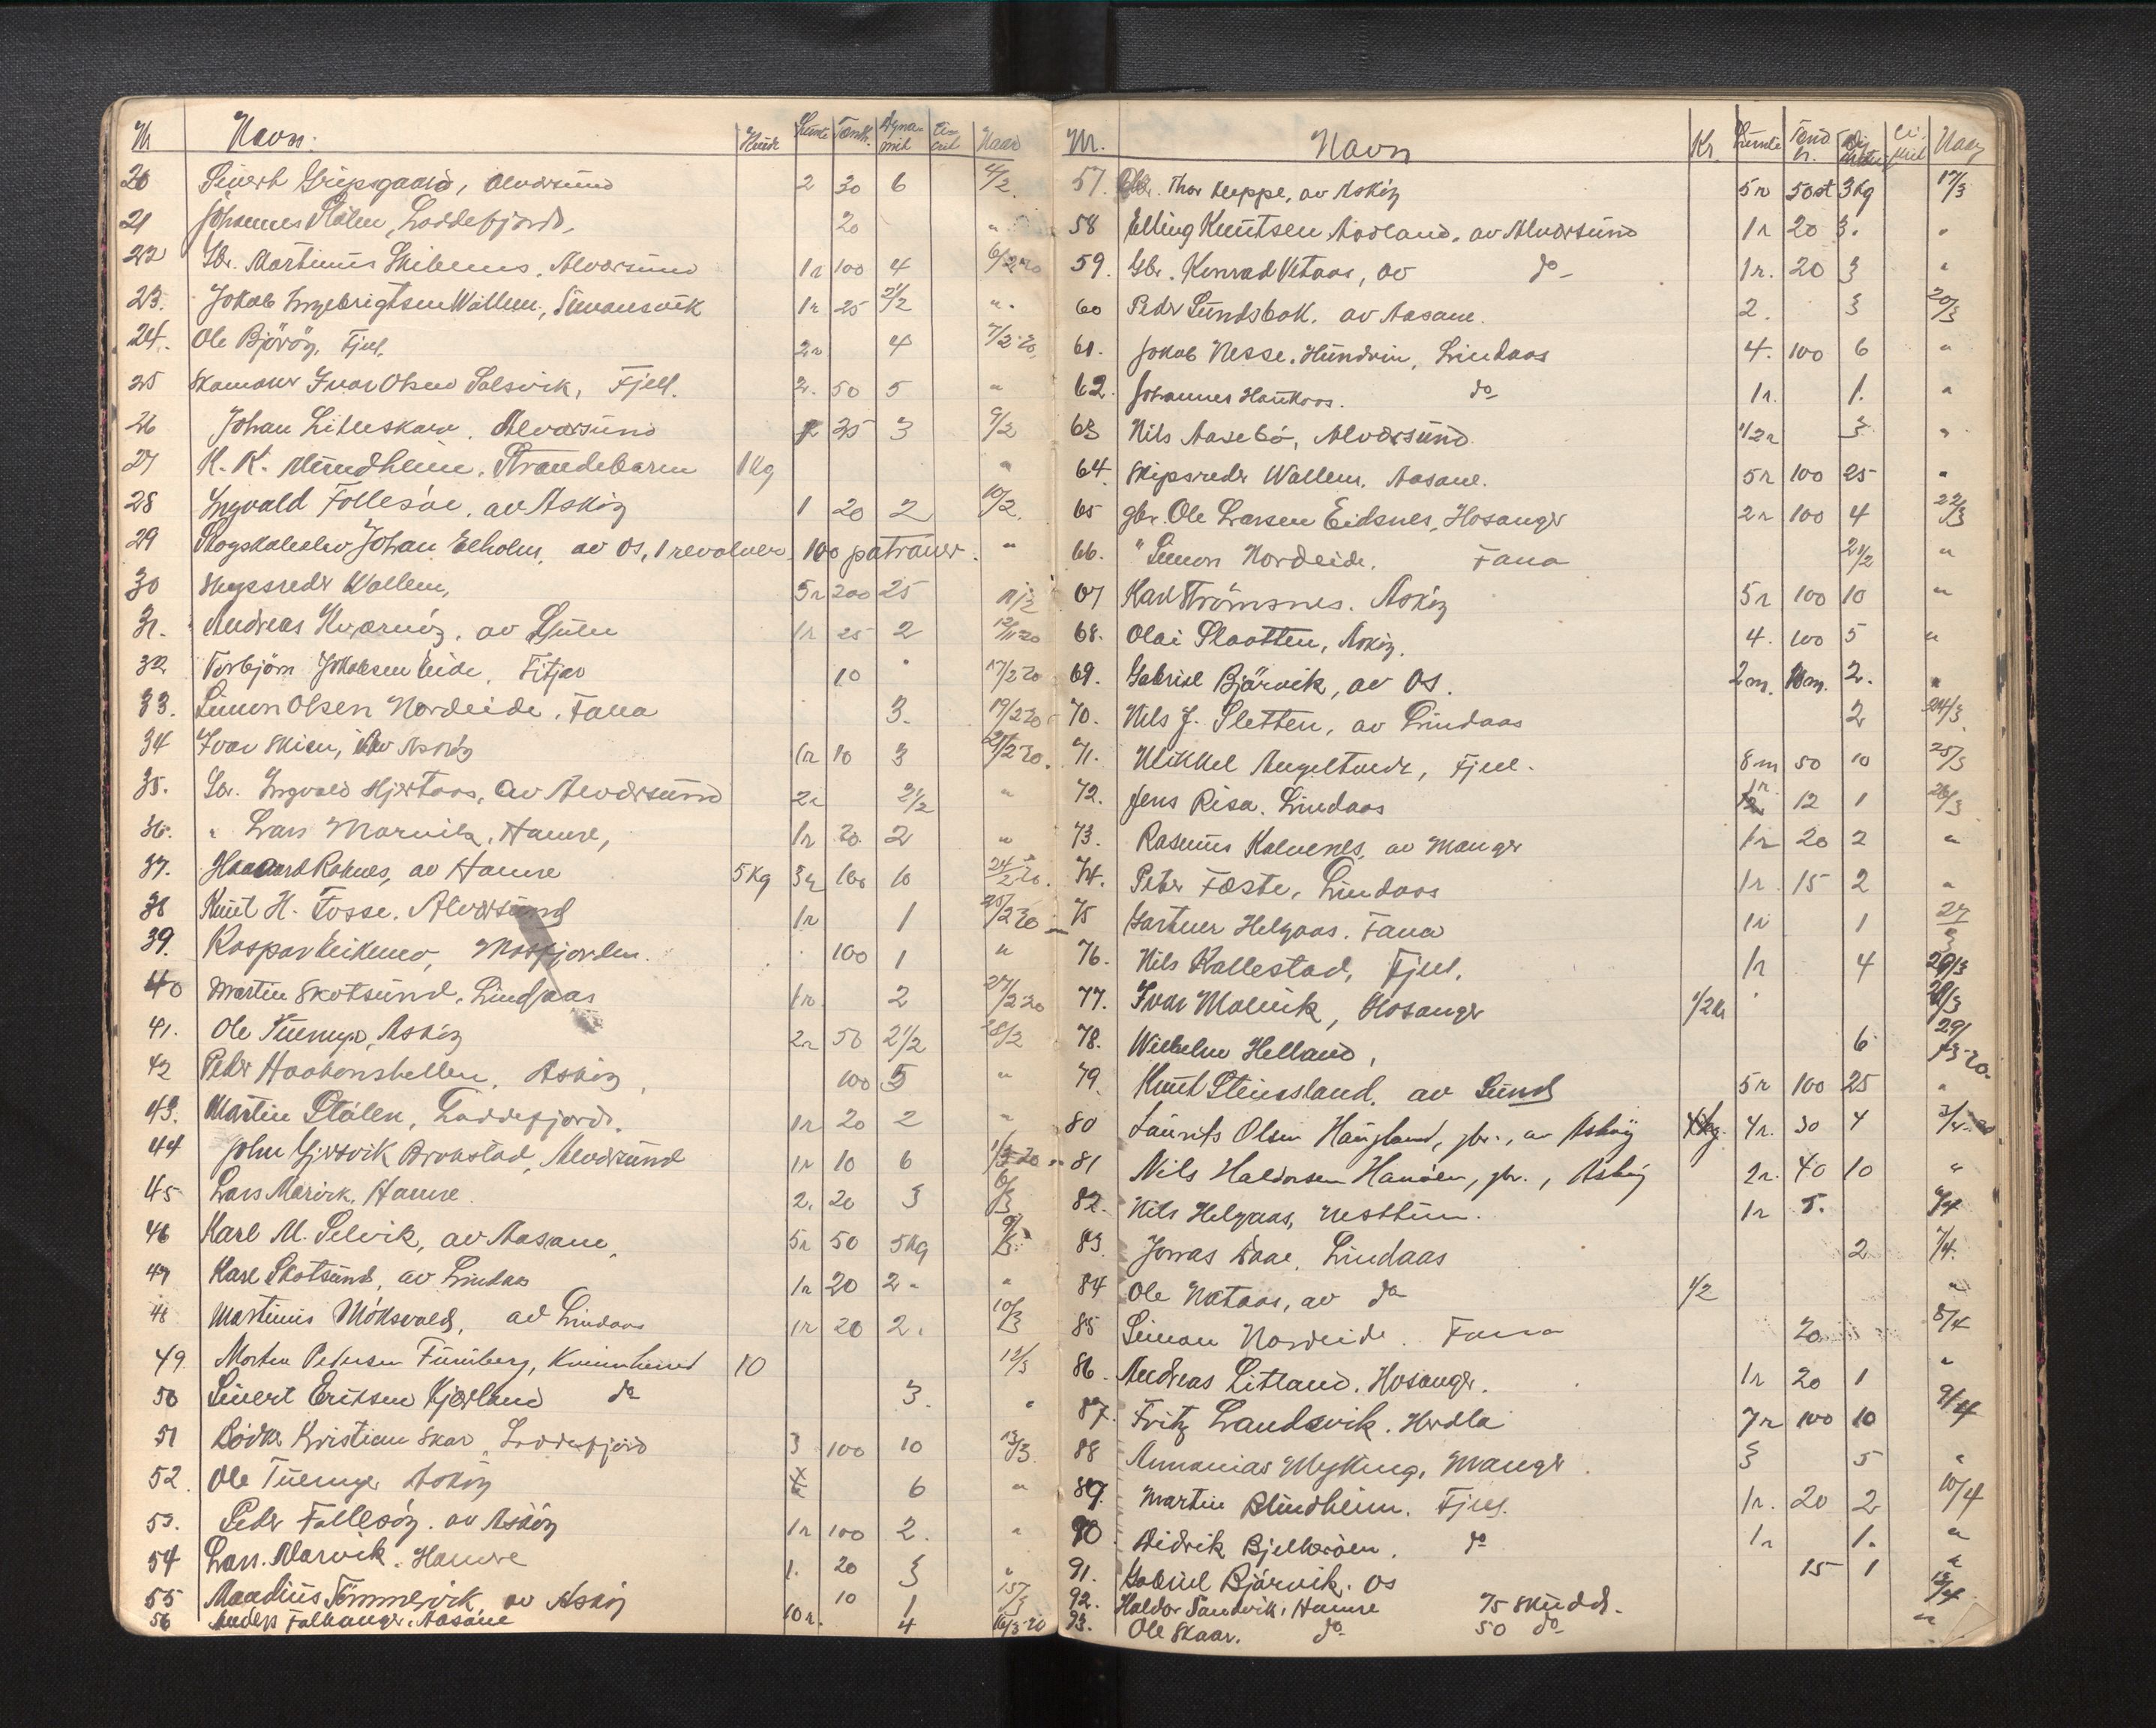 Nr Navn. Krudt Lunte Tænd. Dyna-mit Naar
20 Sivert Gripsgaard, Alversund 2 30 6 4/2
21 Johannes Stålen, Loddefjord, 20 "
22 Gbr. Martinus Alversund 1r 100 4 6/2 20
23. Jakob Ingebrigtsen Wallem, Simonsvik 1r 25 2 1/2 "
24. Ole Björöy, Fjell. 2r 4 7/2 20
25 Skomaker Ivar Olsen Solsvik, Fjell. 2. 50 5 "
26 Johan Litleskare, Alversund 2 25 3 9/2
27 K. K. Mundheim, Strandebarm 1 Kg "
28 Ingvald Follesöe, av Asköy 1 20 2 10/2
29 Johan Elholm, av Os, 1 revolver, 100 patroner. "
30 Skipsreder Wallem, 5r 200 25 11/2
31. Andreas Kværnöy, av 1r 25 2
32 Torbjörn Jakobsen Eide, Fitjar 10 " 17/2 20
33. Simon Olsen Nordeide, Fana 3. 19/2 20
34 Ivar Skien, av Asköy 1r 10 3 21/2 20.
35. Gbr. Ingvald Hjertaas, av Alversund 2r 2 1/2 "
36. " Lars Marvik, Hamre, 1r 20. 2 "
37. Haavard Roknes, av Hamre 5 Kg 3r 100 10 24/2 20.
38 Knut H. Fosse, Alversund 1r 1 25/2 20
39. Kaspar Eikemo, Mosfjorden. 100 1 "
40 Martin Skotsund, Lindaas 1r. 2 27/2 20
41. Ole Tuenyr, Asköy 2r 50 2 1/2 28/2
42 Peder Haakonshellen, Asköy, 100 5 "
43. Martin Stålen, Loddefjord. 1r 20 2 "
44 John Gjersvik Alversund 1r 10 6 1/3 20
45 Lars Marvik, Hamre. 2. 20 3 6/3
46 Karl M. Selvik, av Aasane, 5r 50 5 Kg 9/3.
47 Karl Skotsund, av Lindaas 1r 20 2 "
48 Martinus Möksvold, av Lindaas 1r 20 2. 10/3
49. Morten Petersen Furuberg, Kvinnherred 10 12/3
50 Sivert Eriksen Kjærland do 3. "
51 Bödker Kristian Skar, Loddefjord 3 100 10 13/3.
52. Ole Tuenyr Asköy 6 "
53. Peder Follesöy. av Asköy 1r 100 2. "
54 Lars. Marvik. Hamre 1. 20 3 "
55 Maadius Tömmervik, av Asköy 10 1 15/3
56 Anders Falkanger, Aasane 10r. 4 16/3 20
Nr. Navn Kr. Lunte Tænd h. Naar
57. Gbr. Thor Kleppe, av Asköy 5r 50st 3Kg 17/3
58 Elling Knutsen Aadland, av Alversund 1r 20 3. "
59. Gbr. Konrad Vetaas, av do 1r. 20 3 "
60 Peder Sundsbak. av Aasane. 2. 3 20/3
61. Jakob Nesse, Hundvin, Lindaas 4. 100 6 "
62. Johannes Haukaas. do 1r. 1. "
63 Nils Aasebö, Alversund 1/2r 3 "
64. Skipsreder Wallem, Aasane. 5r 100 25 "
65 gbr. Ole Larsen Eidsnes, Hosanger 2r 100 4 22/3
66. " Simon Nordeide, Fana 2 1/2 "
67 Karl Strömsnes. Asköy 5r 100 10 "
68. Olai Slaatten, Asköy. 4. 100 5 "
69. Gabriel Bjårvik, av Os. 2m. 10m. 2. "
70. Nils J. Sletten, av Lindaas 2 24/3
71. Mikkel Angeltveit, Fjell. 8m 50 10 25/3
72. Jens Risa. Lindaas 1r 12 1 26/3
73. Rasmus Kalvenes, av Manger 1r 20 2 "
74. Peter Fæste, Lindaas 1r. 15 2 "
75 Gartner Helgaas. Fana 1r 1 27/3
76. Nils Kallestad, Fjell. 1r 4 29/3
77. Ivar Molvik, Hosanger 1/2 Kr
78. Wilhelm Helland, 6 29/3 20.
79. Knut Steinsland. av Sund 5r 100 25 "
80 Laurits Olsen Haugland, gbr., av Asköy 4r. 30 4
81 Nils Haldorsen Hanöen, gbr., Asköy 2r. 40 10 "
82. Nils Helgaas, Nesttun. 1r 5.
83. Jonas Daae, Lindaas 2 7/4.
84 Ole Nataas, av do 1/2 "
85 Simon Nordeide. Fana 20 8/4
86. Andreas Litland, Hosanger. 1r 20 1 "
87. Fritz Landsvik. Herdla 7r 100 10 9/4
88 Annanias Myking, Manger. 3 5 "
89. Martin Blindheim. Fjell. 1r. 20 2 10/4
90. Didrik Bjelkaröen. do 1r 1. "
91. Gabriel Bjårvik. Os 15 1 "
92. Haldor Sandvik, Hamre 75 skudd.
93. Ole Skaar. do 50 do "